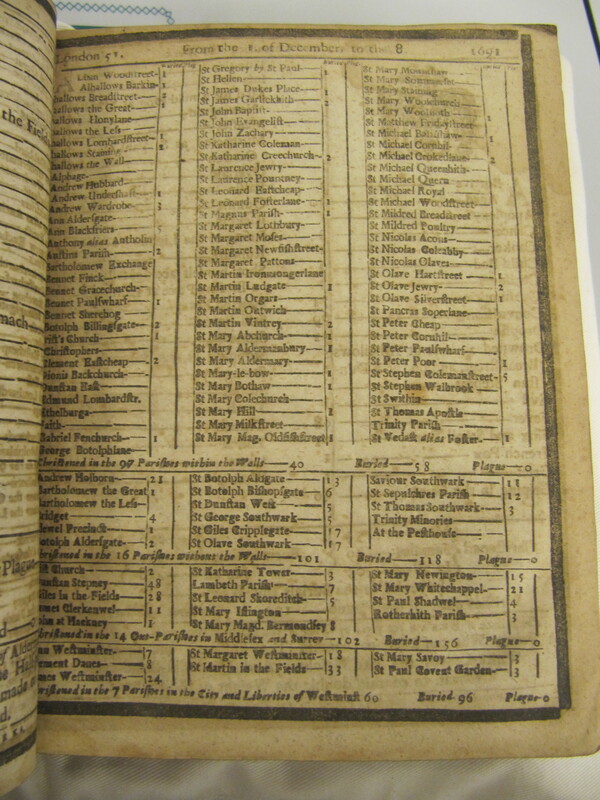 London 51. From the 1. of December, to the 8. 1691
lban Woodstreet- 1 St Gregory by St Paul 1 St Mary Mounthaw
Alhallows Barkin- St Hellen St Mary Sommerset
hallows Breadstreet St James Dukes Place St Mary Staining
hallows the Great St James Garlickhith St Mary Woolchurch
hallows Honylane St John Baptist St Mary Woolnoth
hallows the Less St John Evangelist Matthew Fridaystreet
hallows Lombardstreet St John Zachary St Michael Bassishaw
hallows Staining St Katharine Coleman St Michael Cornhil
hallows the Wall St Katharine Creechurch 2 St Michael Crokedlane
Alphage St Laurence Jewry St Michael Queenhith
Andrew Hubbard St Laurence Pountney St Michael Quern
Andrew Undershaft St Leonard Eastcheap St Michael Royal
Andrew Wardrobe 3 St Leonard Fosterlane St Michael Woodstreet
Ann Aldersgate St Magnus Parish St Mildred Breadstreet
Ann Blackfriers St Margaret Lothbury St Mildred Poultry
Anthony alias Antholin St Margaret Moses St Nicolas Acons
Austins Parish St Margaret Newfishstreet St Nicolas Coleabby
Bartholomew Exchange St Margaret Pattons St Nicolas Olaves
Bennet Finck St Martin Ironmongerlane St Olave Hartstreet 1
Bennet Gracechurch St Martin Ludgate St Olave Jewry 2
Bennet Paulswharf 1 St Martin Orgars St Olave Silverstreet 1
Bennet Sherehog St Martin Outwich St Pancras Soperlane
Botolph Billingsgate 2 St Martin Vintrey 2 St Peter Cheap
rist's Church St Mary Abchurch 1 St Peter Cornhil
Christophers St Mary Aldermanbury St Peter Paulswharf
Clement Eastcheap St Mary Aldermary St Peter Poor 1
Dionis Backchurch St Mary-le-bow 1 St Stephen Colemanstreet 5
Dunstan East St Mary Bothaw St Stephen Walbrook
Edmund Lombardstr. St Mary Colechurch St Swithin
Ethelburga St Mary Hill St Thomas Apostle
Faith St Mary Milkstreet Trinity Parish
Gabriel Fenchurch 1 St Mary Mag. Oldfishstreet 1 St Vedast alias Foster 1
George Botolphlane
Christened in the 97 Parishes within the Walls 40 Buried 58 Plague 0
Andrew Holborn 21 St Botolph Aldgate 13 Saviour Southwark 11
Bartholomew the Great 1 St Botolph Bishopsgate 6 St Sepulchres Parish 12
Bartholomew the Less St Dunstan West 5 St Thomas Southwark 3
Bridget 4 St George Southwark 5 Trinity Minories
dewel Precinct 1 St Giles Cripplegate 17 At the Pesthouse
otolph Aldersgate 2 St Olave Southwark 17
hristened in the 16 Parishes without the Walls 101 Buried 118 Plague 0
st Church 2 St Katharine Tower 3 St Mary Newington 15
unstan Stepney 48 Lambeth Parish 7 St Mary Whitechappel 21
Giles in the Fields 28 St Leonard Shoreditch 5 St Paul Shadwel 4
ames Clerkenwel 11 St Mary Islington Rotherhith Parish 3
ohn at Hackney 1 St Mary Magd. Bermondsey 8
hristened in the 14 Out-Parishes in Middlesex and Surrey 102 Buried 156 Plague 0
nn Westminster 7 St Margaret Westminster 18 St Mary Savoy 3
lement Danes 8 St Martin in the Fields 33 St Paul Covent Garden 3
mes Westminster 24
hristened in the 7 Parishes in the City and Liberties of Westminst 60 Buried 96 Plague 0
the Fields
mach
Plague
of Alder
made